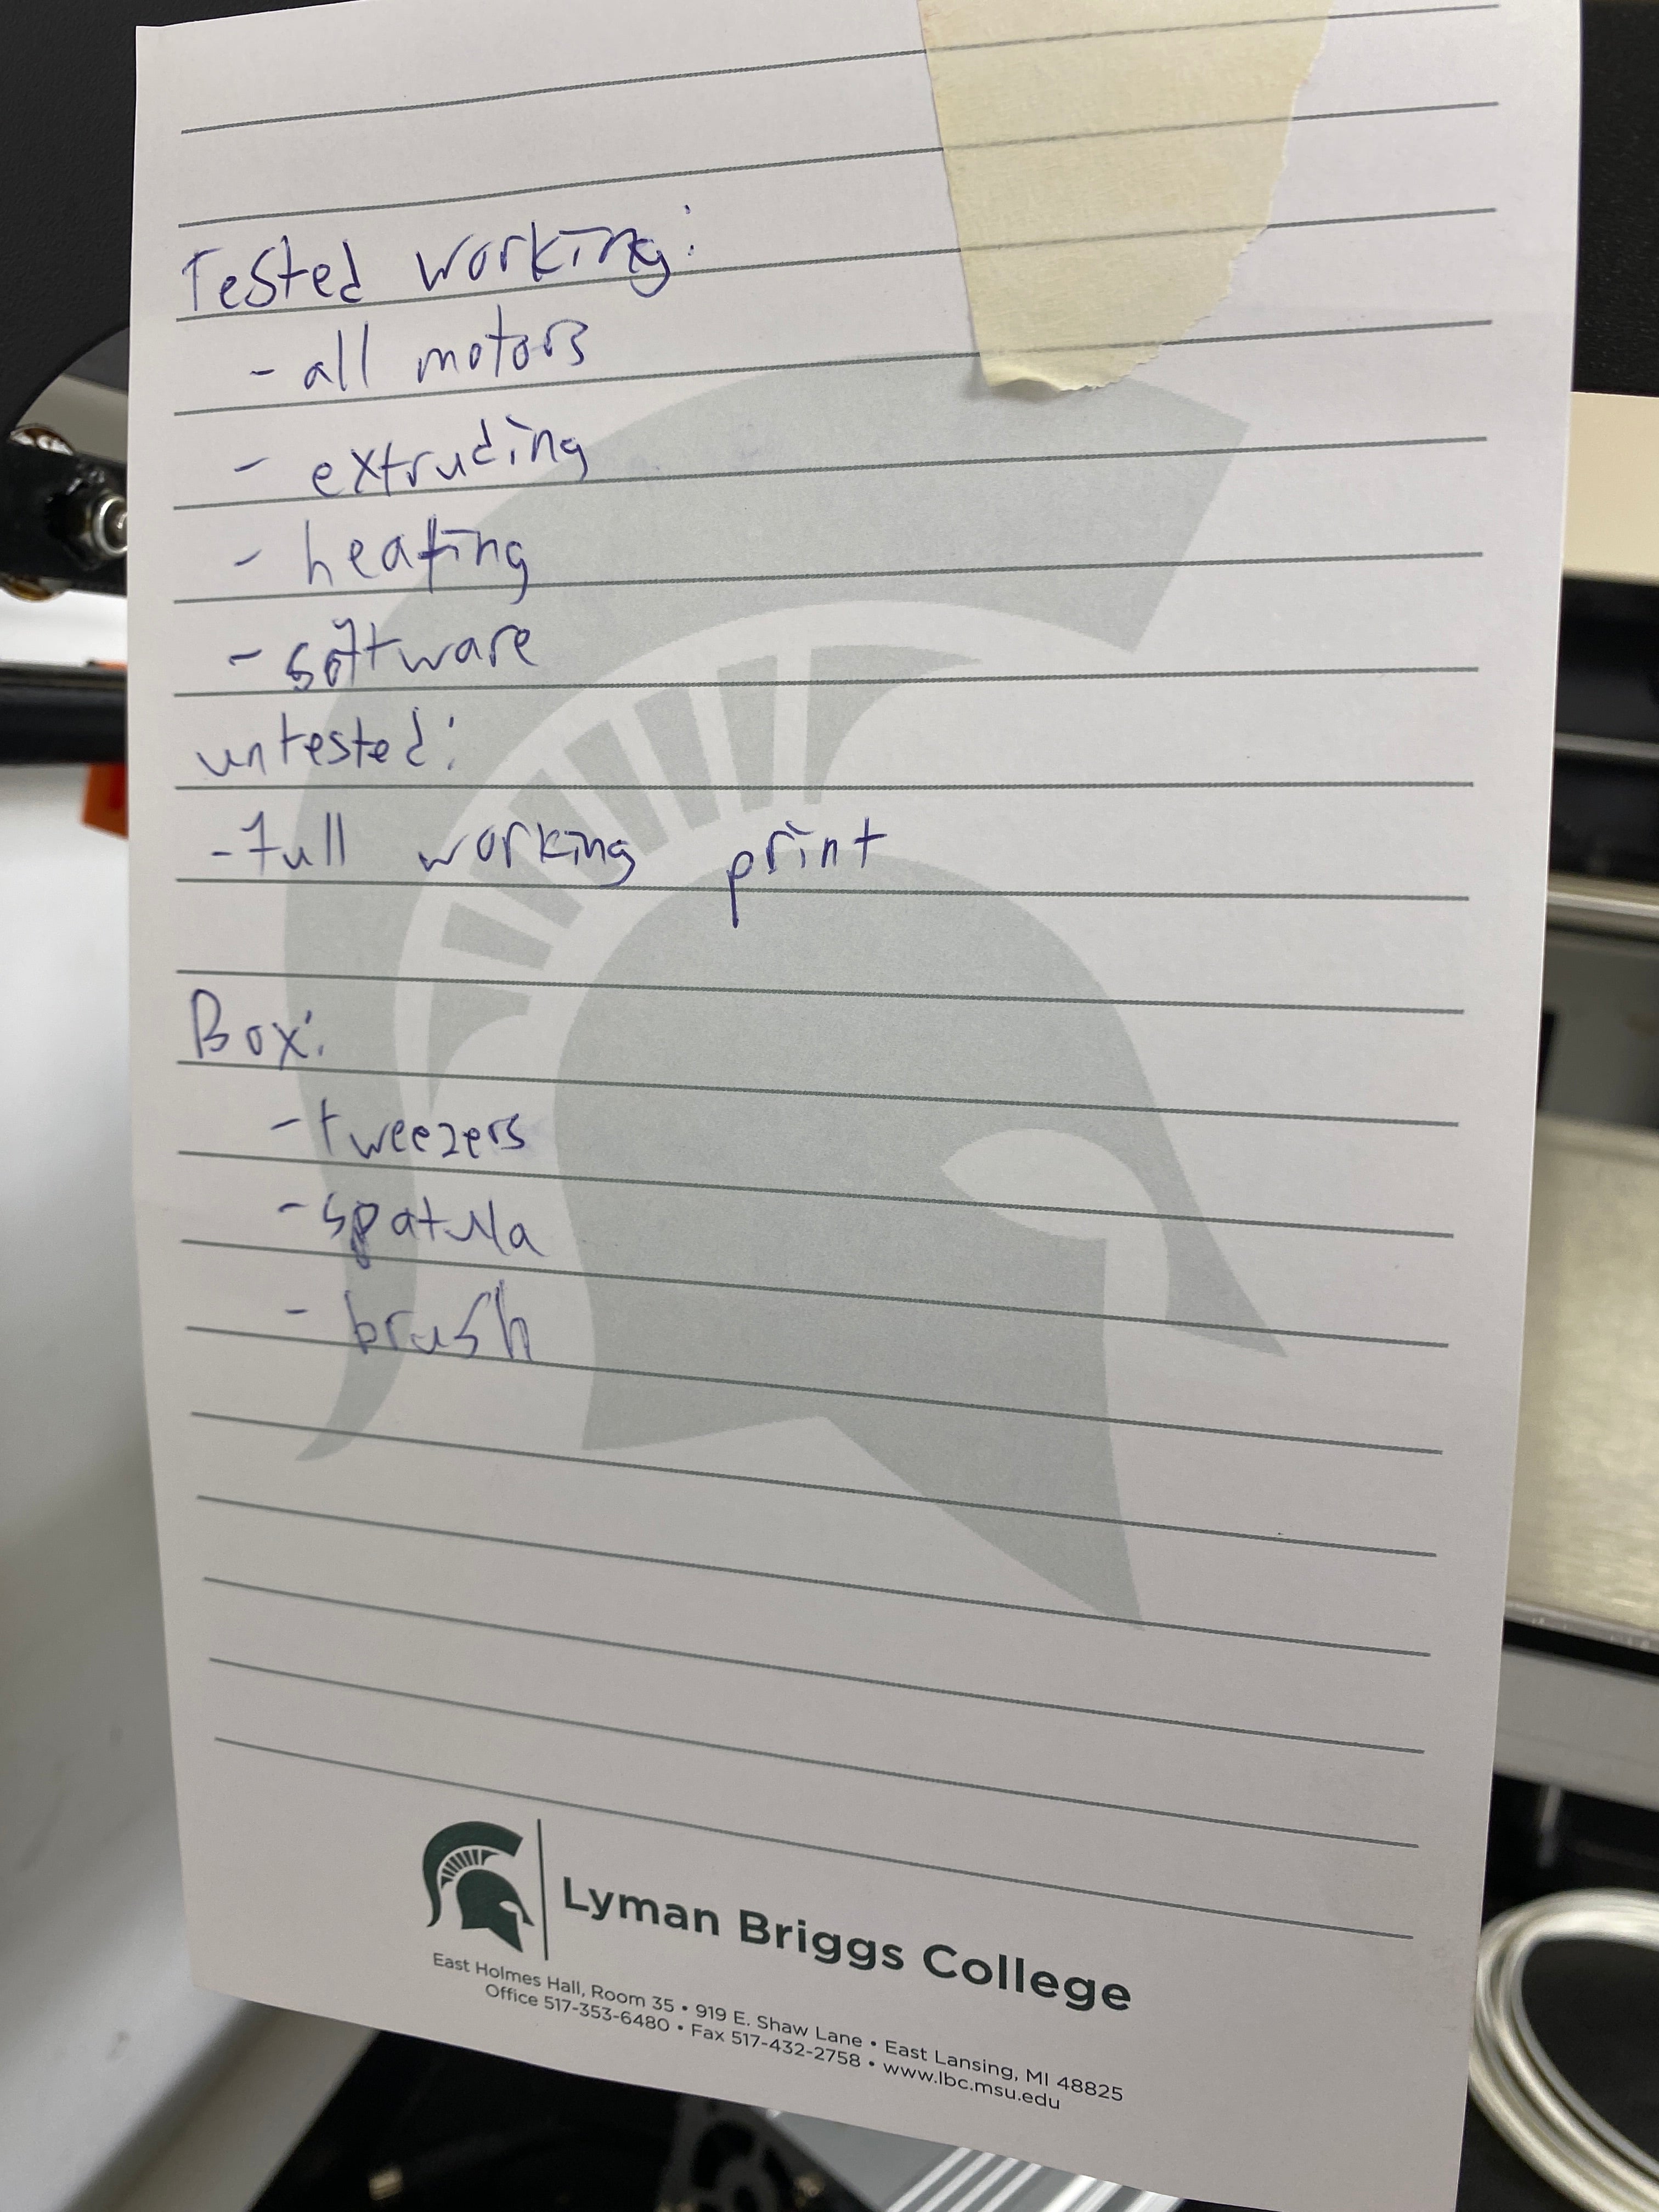 Tested working:
- all motors
- extruding
- heating
- software
untested:
- full working print
Box:
- tweezers
- spatula
- brush
Lyman Briggs College
East Holmes Hall, Room 35 • 919 E. Shaw Lane • East Lansing, MI 48825
Office 517-353-6480 • Fax 517-432-2758 • www.lbc.msu.edu